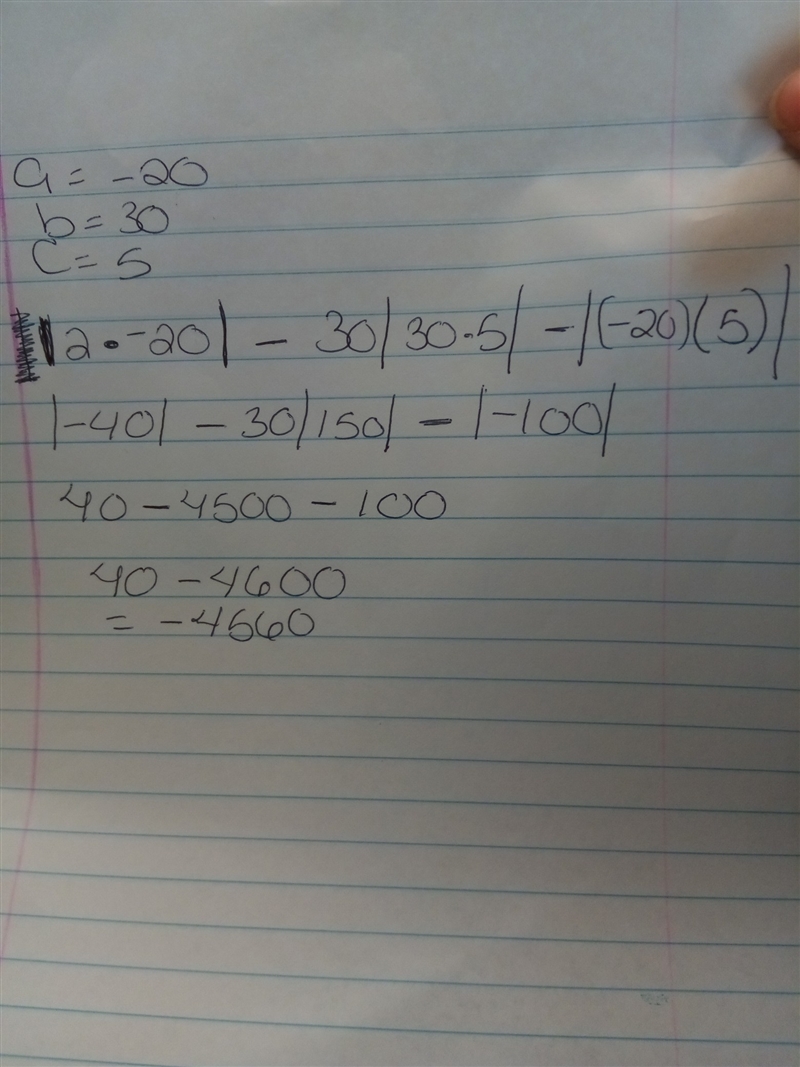 a = -20
b = 30
c = 5
|2 • -20| - 30|30 • 5| - |(-20)(5)|
|-40| - 30|150| - |-100|
40 - 4500 - 100
40 - 4600
= -4560